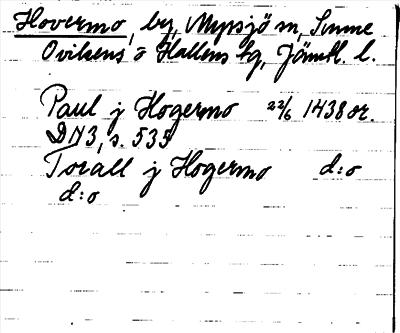 Hovermo, by, Myssjö sn, Sunne
Ovikens o Hallens tg, Jämtl. l.
Paul j Hogermo 22/6 1438 or.
DN3, s. 535
Torall j Hogermo d:o
d:o